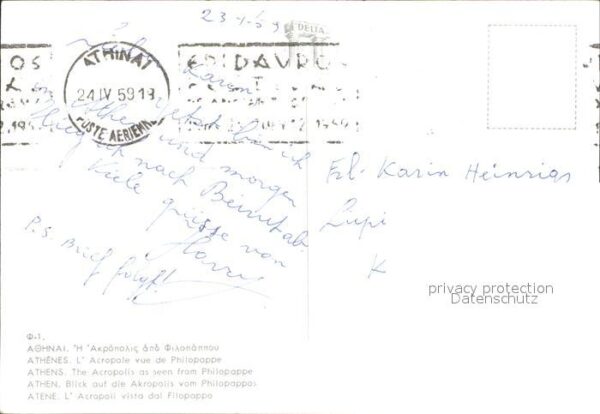 23.4.59
DELTA
ATHINAI
24 IV 59 19
POSTE AERIENNE
OS
EPIDAVRO
Liebe Karin
in Athen jetzt bin ich
und morgen
flieg ich nach Beirut ab.
Viele grüsse von
Harry
P.S. Brief folgt!
Frl. Karin Heinrigs
Lupi
K
privacy protection
Datenschutz
Φ-1.
ΑΘΗΝΑΙ. Ἡ Ἀκρόπολις ἀπὸ Φιλοπάππου
ATHÈNES. L' Acropole vue de Philopappe
ATHENS. The Acropolis as seen from Philopappe
ATHEN. Blick auf die Akropolis vom Philopappos
ATENE. L' Acropoli vista dal Filopappo